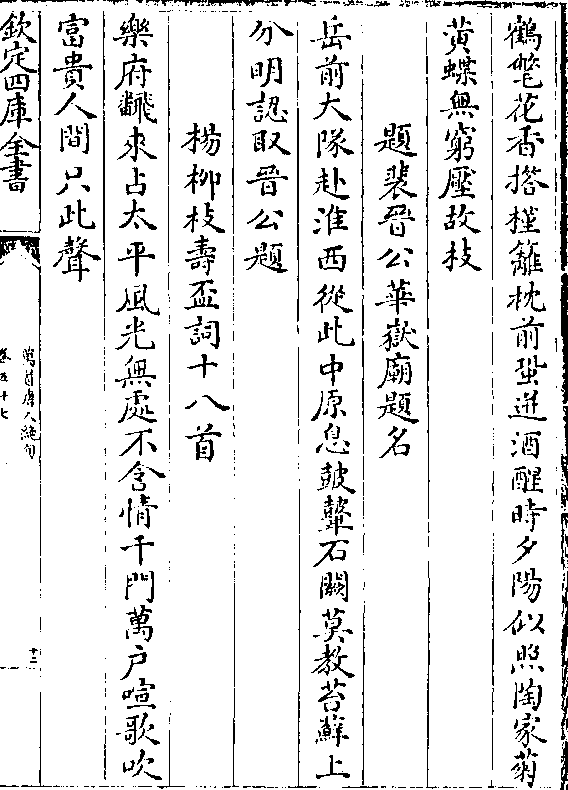 鶴氅花香搭槿籬枕前蛩迸酒醒時夕陽似照陶家菊
黃蝶無窮壓故枝
題裴晉公華嶽廟題名
岳前大隊赴淮西從此中原息鼓鼙石闕莫教苔蘚上
分明認取晉公題
楊柳枝壽盃詞十八首
樂府飜來占太平風光無處不含情千門萬戶喧歌吹
富貴人間只此聲
欽定四庫全書
萬首唐人絶句
卷五十七
十三